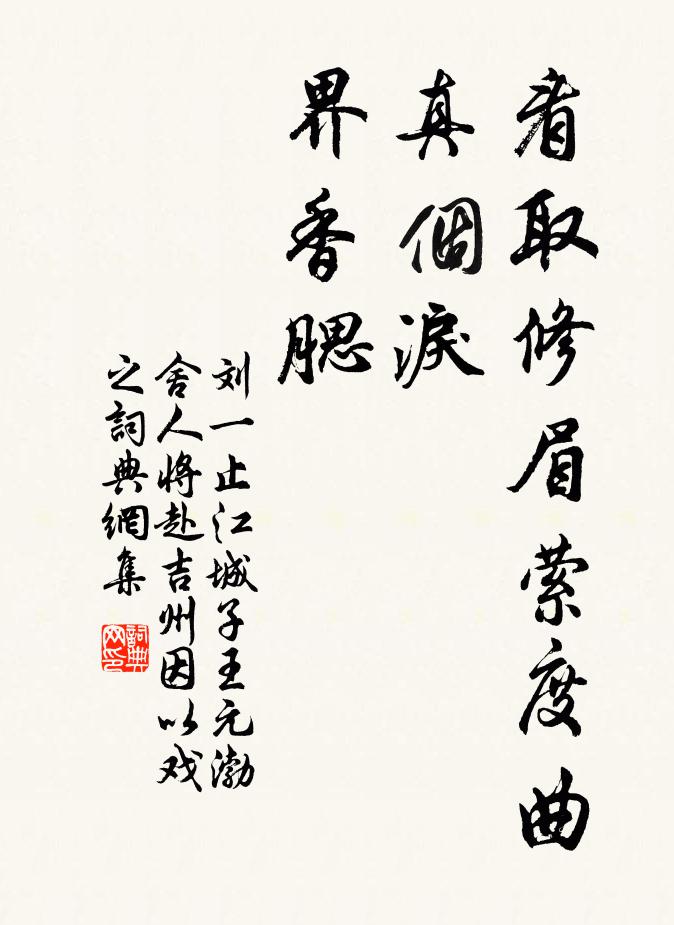 看取修眉萦度曲
真個淚
界香腮
刘一止江城子王元渤
舍人将赴吉州因以戏
之詞典網集
詞典
网印